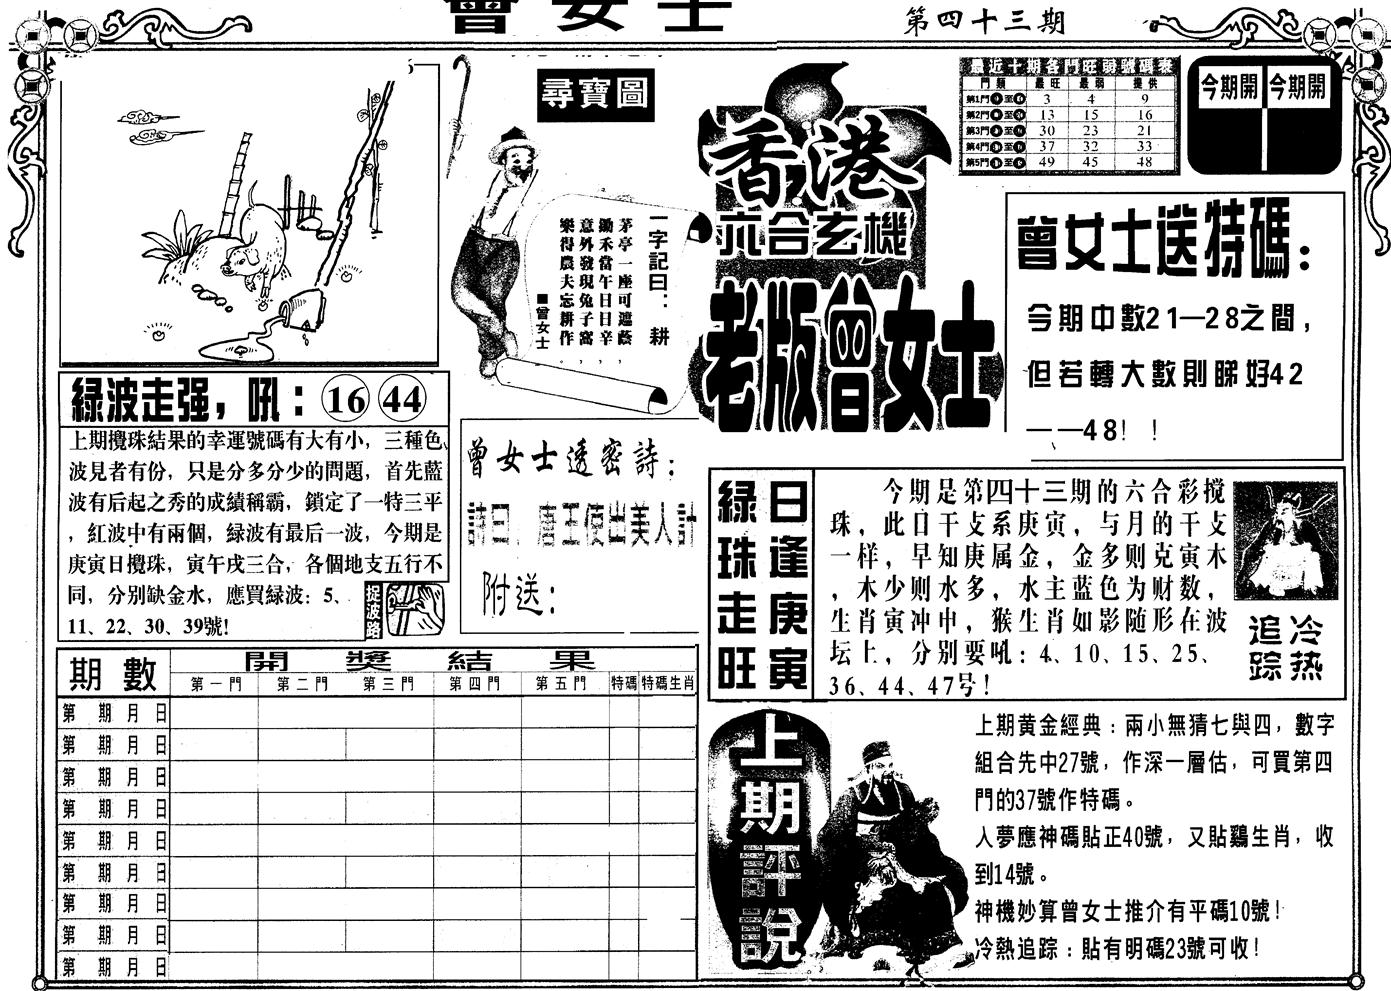 曾女士
第四十三期
尋寶圖
一字記曰：耕
茅亭一座可遮蔭，
鋤禾當午日日辛，
意外發現兔子窩，
樂得農夫忘耕作。
■曾女士
香港
六合玄機
老版曾女士
最近十期各門旺弱號碼表
門類 最旺 最弱 提供
第1門 至 3 4 9
第2門 至 13 15 16
第3門 至 30 23 21
第4門 至 37 32 33
第5門 至 49 45 48
今期開 今期開
曾女士送特碼：
今期中數21—28之間，
但若轉大數則睇好42
——48！！
綠波走强，吼：16 44
上期攪珠結果的幸運號碼有大有小，三種色
波見者有份，只是分多分少的問題，首先藍
波有后起之秀的成績稱霸，鎖定了一特三平
，紅波中有兩個，緑波有最后一波，今期是
庚寅日攪珠，寅午戌三合，各個地支五行不
同，分别缺金水，應買緑波：5、
11、22、30、39號!
捉波路
曾女士透密詩：
詩曰：唐王使出美人計
附送：
綠珠走旺
日逢庚寅
今期是第四十三期的六合彩搅
珠，此日干支系庚寅，与月的干支
一样，早知庚属金，金多则克寅木
，木少则水多，水主蓝色为财数，
生肖寅冲申，猴生肖如影随形在波
坛上，分别要吼：4、10、15、25、
36、44、47号!
冷热追踪
期數 開獎結果
第一門 第二門 第三門 第四門 第五門 特碼 特碼生肖
第 期 月 日
第 期 月 日
第 期 月 日
第 期 月 日
第 期 月 日
第 期 月 日
第 期 月 日
第 期 月 日
第 期 月 日
上期評說
上期黄金經典：兩小無猜七與四，數字
組合先中27號，作深一層估，可買第四
門的37號作特碼。
人夢應神碼貼正40號，又貼鷄生肖，收
到14號。
神機妙算曾女士推介有平碼10號!
冷熱追踪：貼有明碼23號可收!